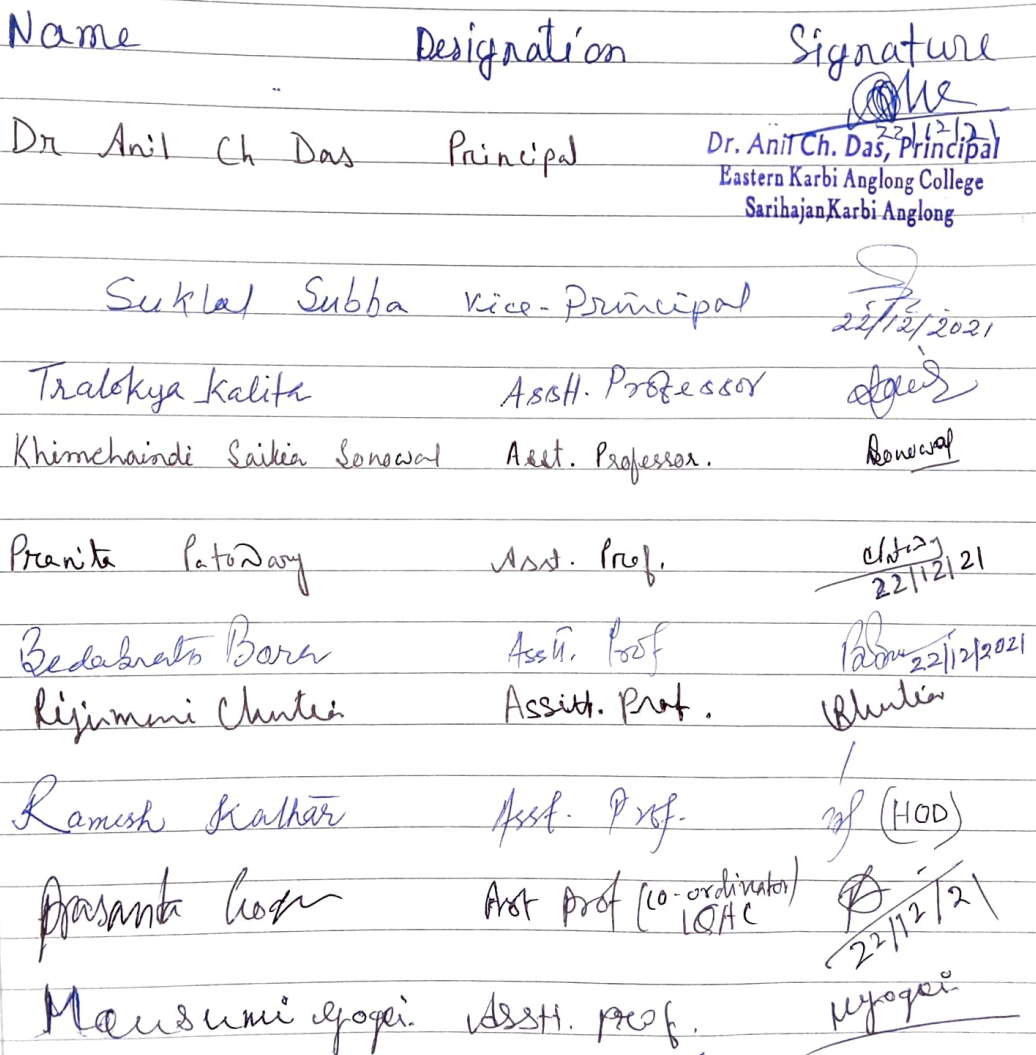 Name Designation Signature
Dr Anil Ch Das Principal 22/12/21
Dr. Anil Ch. Das, Principal
Eastern Karbi Anglong College
Sarihajan,Karbi Anglong
Suklal Subba Vice-Principal 22/12/2021
Tralokya Kalita Asstt. Professor
Khimchaindi Saikia Sonowal Asst. Professor. Sonowal
Pranita Patowary Asst. Prof. 22/12/21
Bedabrata Bora Asstt. Prof 22/12/2021
Rijumoni Chutia Assitt. Prof. RChutia
Ramesh Kathar Asst. Prof. (HOD)
Prasanta Gogoi Asst Prof (Co-ordinator) 22/12/21
IQAC
Mousumi Gogoi. Asstt. prof. MGogoi